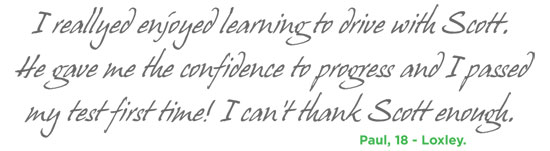 I reallyed enjoyed learning to drive with Scott.
He gave me the confidence to progress and I passed
my test first time! I can't thank Scott enough.
Paul, 18 - Loxley.